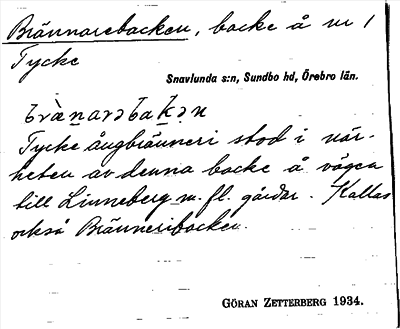 Brännarebacken, backe å nr 1
Tycke
Snavlunda s:n, Sundbo hd, Örebro län.
brä̀ṉarəbaḵən
Tycke ångbränneri stod i när-
heten av denna backe å vägen
till Linneberg m. fl. gårdar. Kallas
också Bränneribacken.
GÖRAN ZETTERBERG 1934.